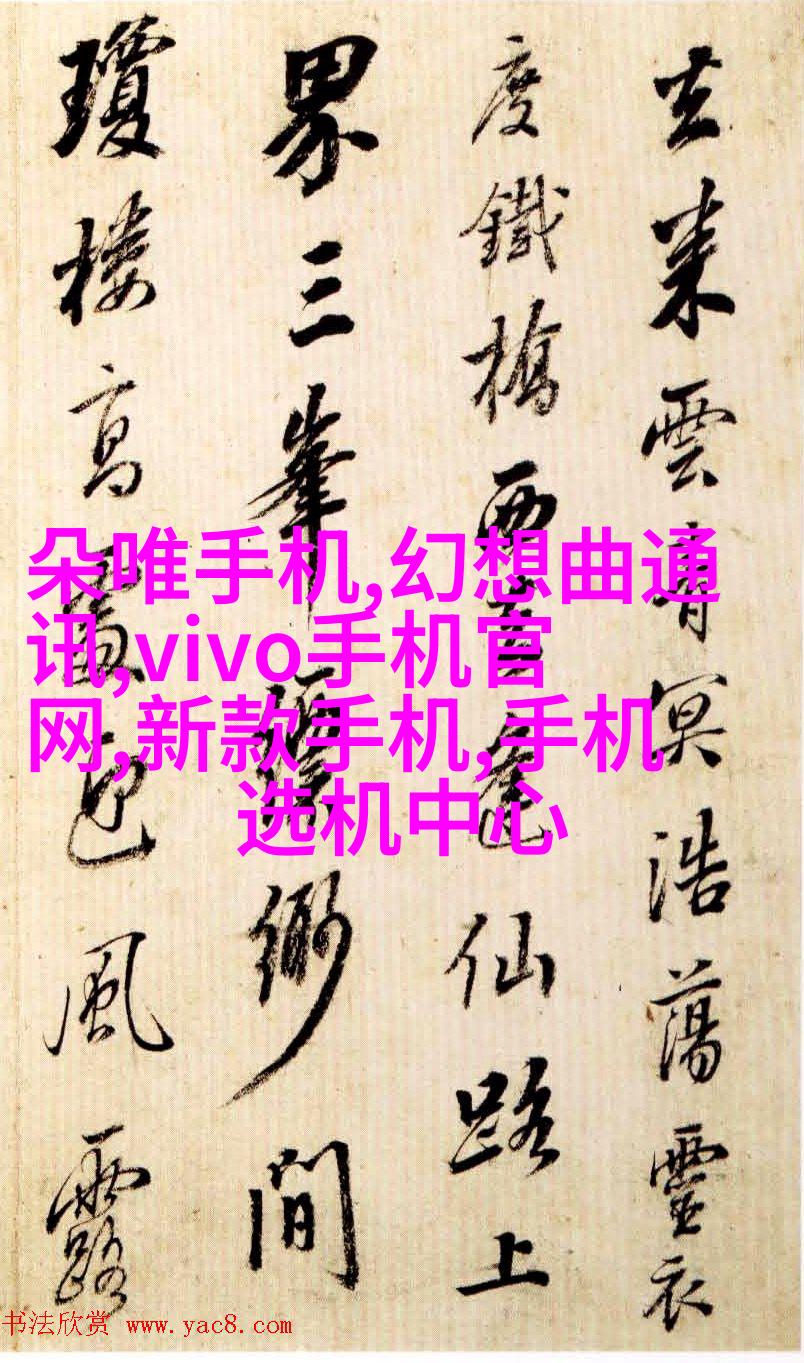 去来雲亭冥浩蕩靈衣
度鐵橋西仙路上
界三峯縹緲間
瓊樓高處迎風露
朵唯手机,幻想曲通
讯,vivo手机官
网,新款手机,手机
选机中心
书法欣赏 www.yac8.com